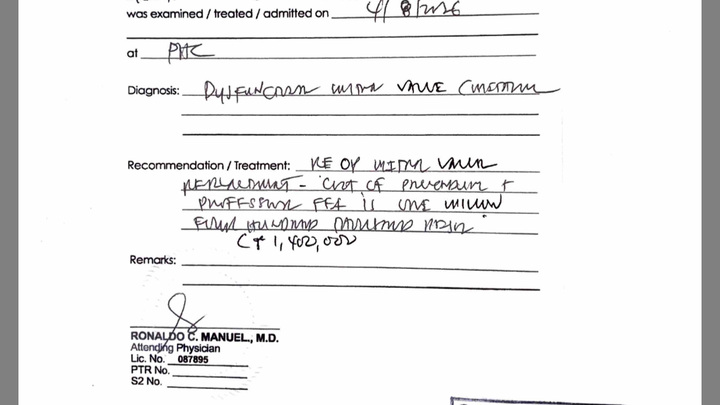 was examined / treated / admitted on 4/8/2026
at PHC
Diagnosis: DYSFUNCTION MITRAL VALVE
Recommendation / Treatment: RE OP MITRAL VALVE
REPLACEMENT - COST OF PROCEDURE +
PROFESSIONAL FEE IS ONE MILLION
FOUR HUNDRED THOUSAND PESOS
(₱ 1,400,000
Remarks:
RONALDO C. MANUEL, M.D.
Attending Physician
Lic. No. 087895
PTR No.
S2 No.